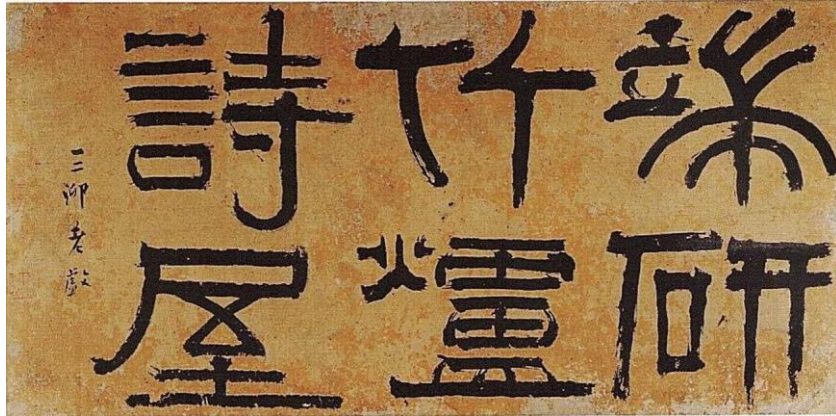 端研
竹爐
詩屋
三泖老戲